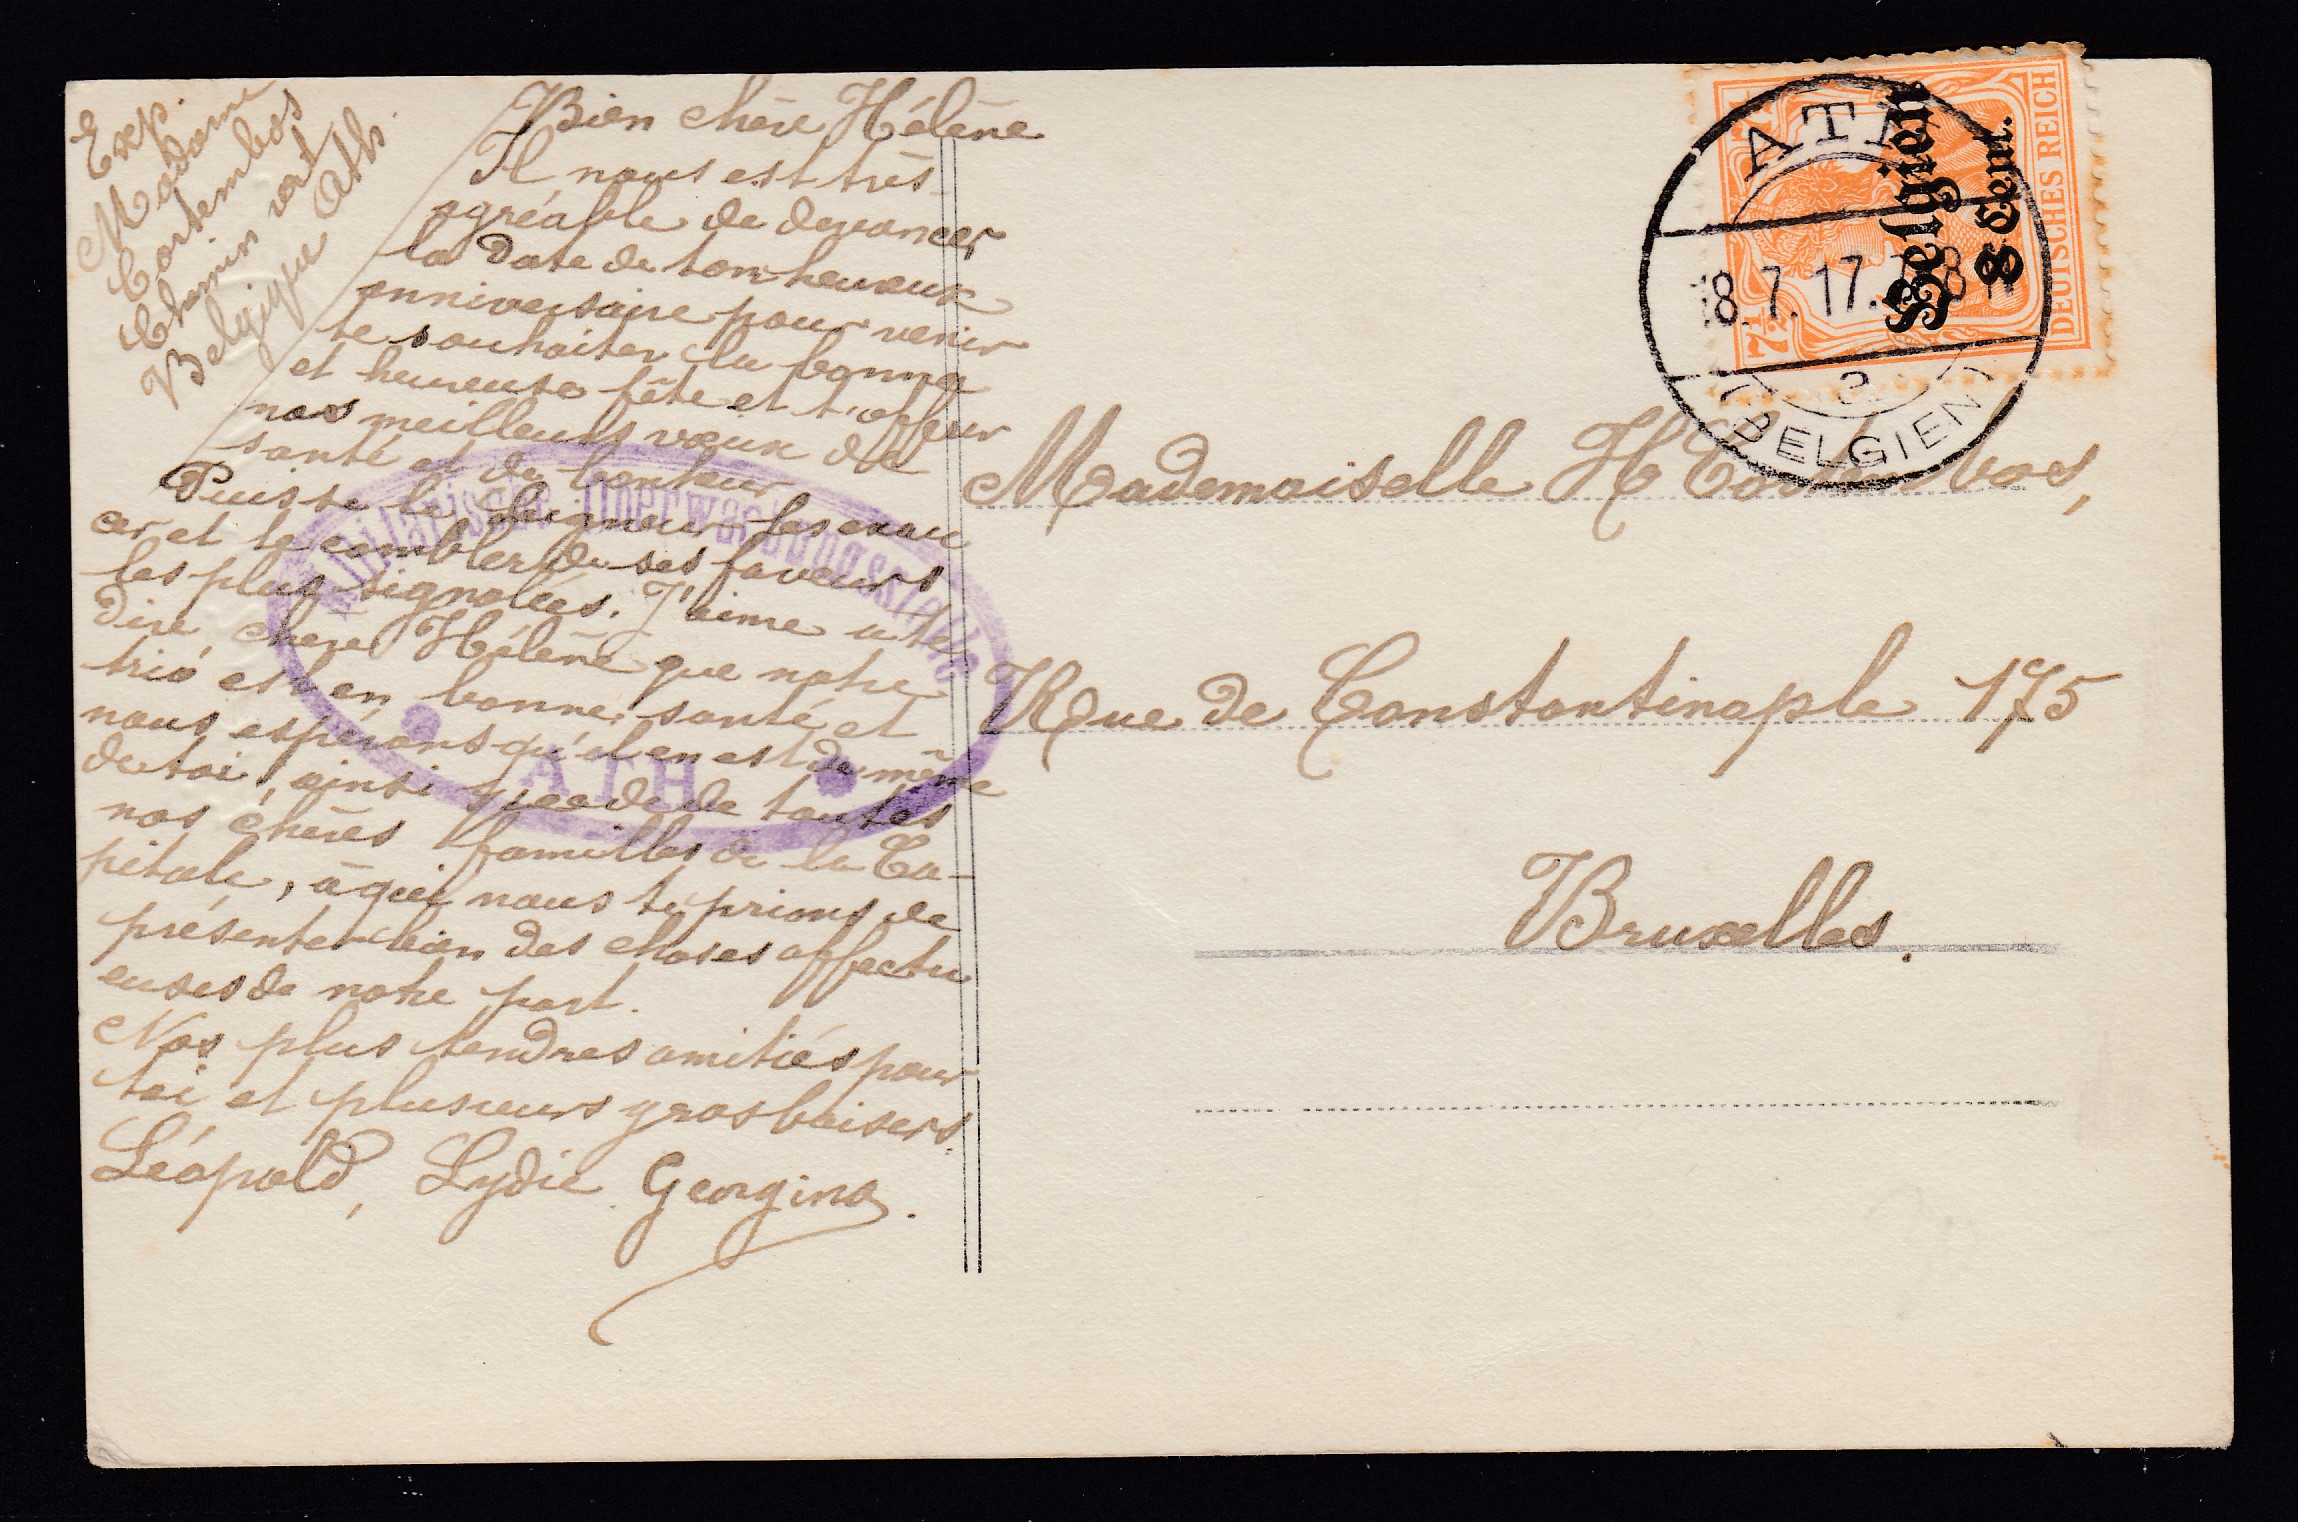 Exp.
Madame
Cortembos
Chemin vert
Belgique Ath.
Bien chère Hélène
Il nous est très
agréable de devancer
la date de ton heureux
anniversaire pour venir
te souhaiter la bonne
et heureuse fête et t'offrir
nos meilleurs vœux de
santé et de bonheur
Puisse le Seigneur les exau
cer et te combler de ses faveurs
les plus signalées. J'aime a te
dire, chère Hélène que notre
trio est en bonne santé et
nous espérons qu'il en est de même
de toi, ainsi que de toutes
nos chères familles de la Ca-
pitale, à qui nous te prions de
présenter bien des choses affectu
euses de notre part.
Nos plus tendres amitiés pour
toi et plusieurs gros baisers.
Léopold, Lydie Georgina.
Militärische Überwachungsstelle
ATH
ATH
18.7.17.7-8 N
(BELGIEN)
Belgien
8 Cent.
DEUTSCHES REICH
7½ 7½
Mademoiselle H Cortembos,
Rue de Constantinople 175
Bruxelles.